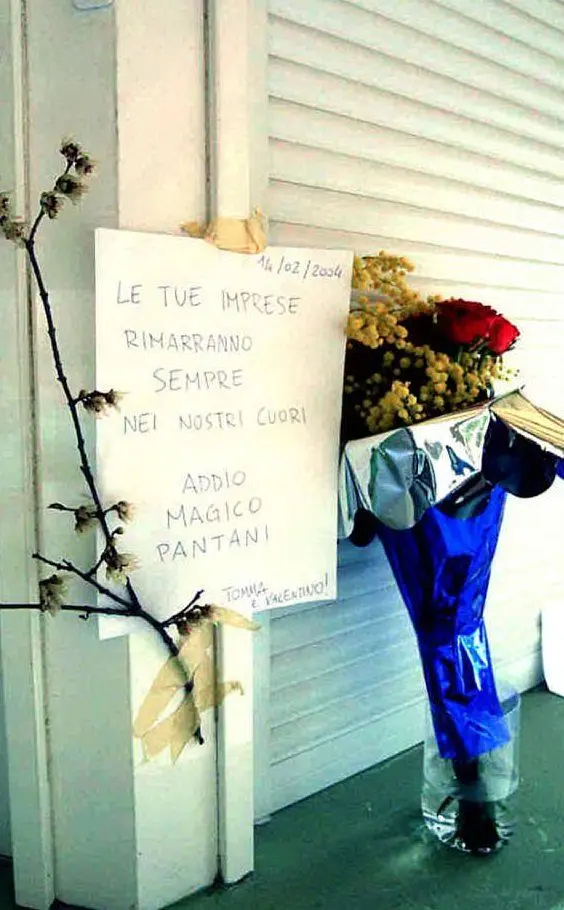 14/02/2004
LE TUE IMPRESE
RIMARRANNO
SEMPRE
NEI NOSTRI CUORI
ADDIO
MAGICO
PANTANI
TOMMA
E VALENTINO!